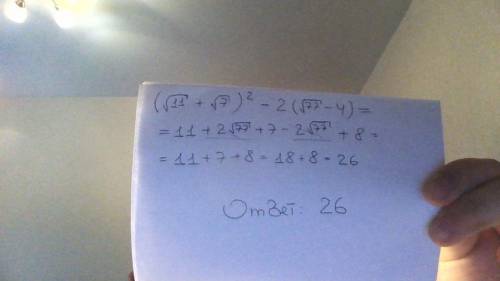 (√11 + √7)² - 2(√77 - 4) =
= 11 + 2√77 + 7 - 2√77 + 8 =
= 11 + 7 + 8 = 18 + 8 = 26
Ответ: 26